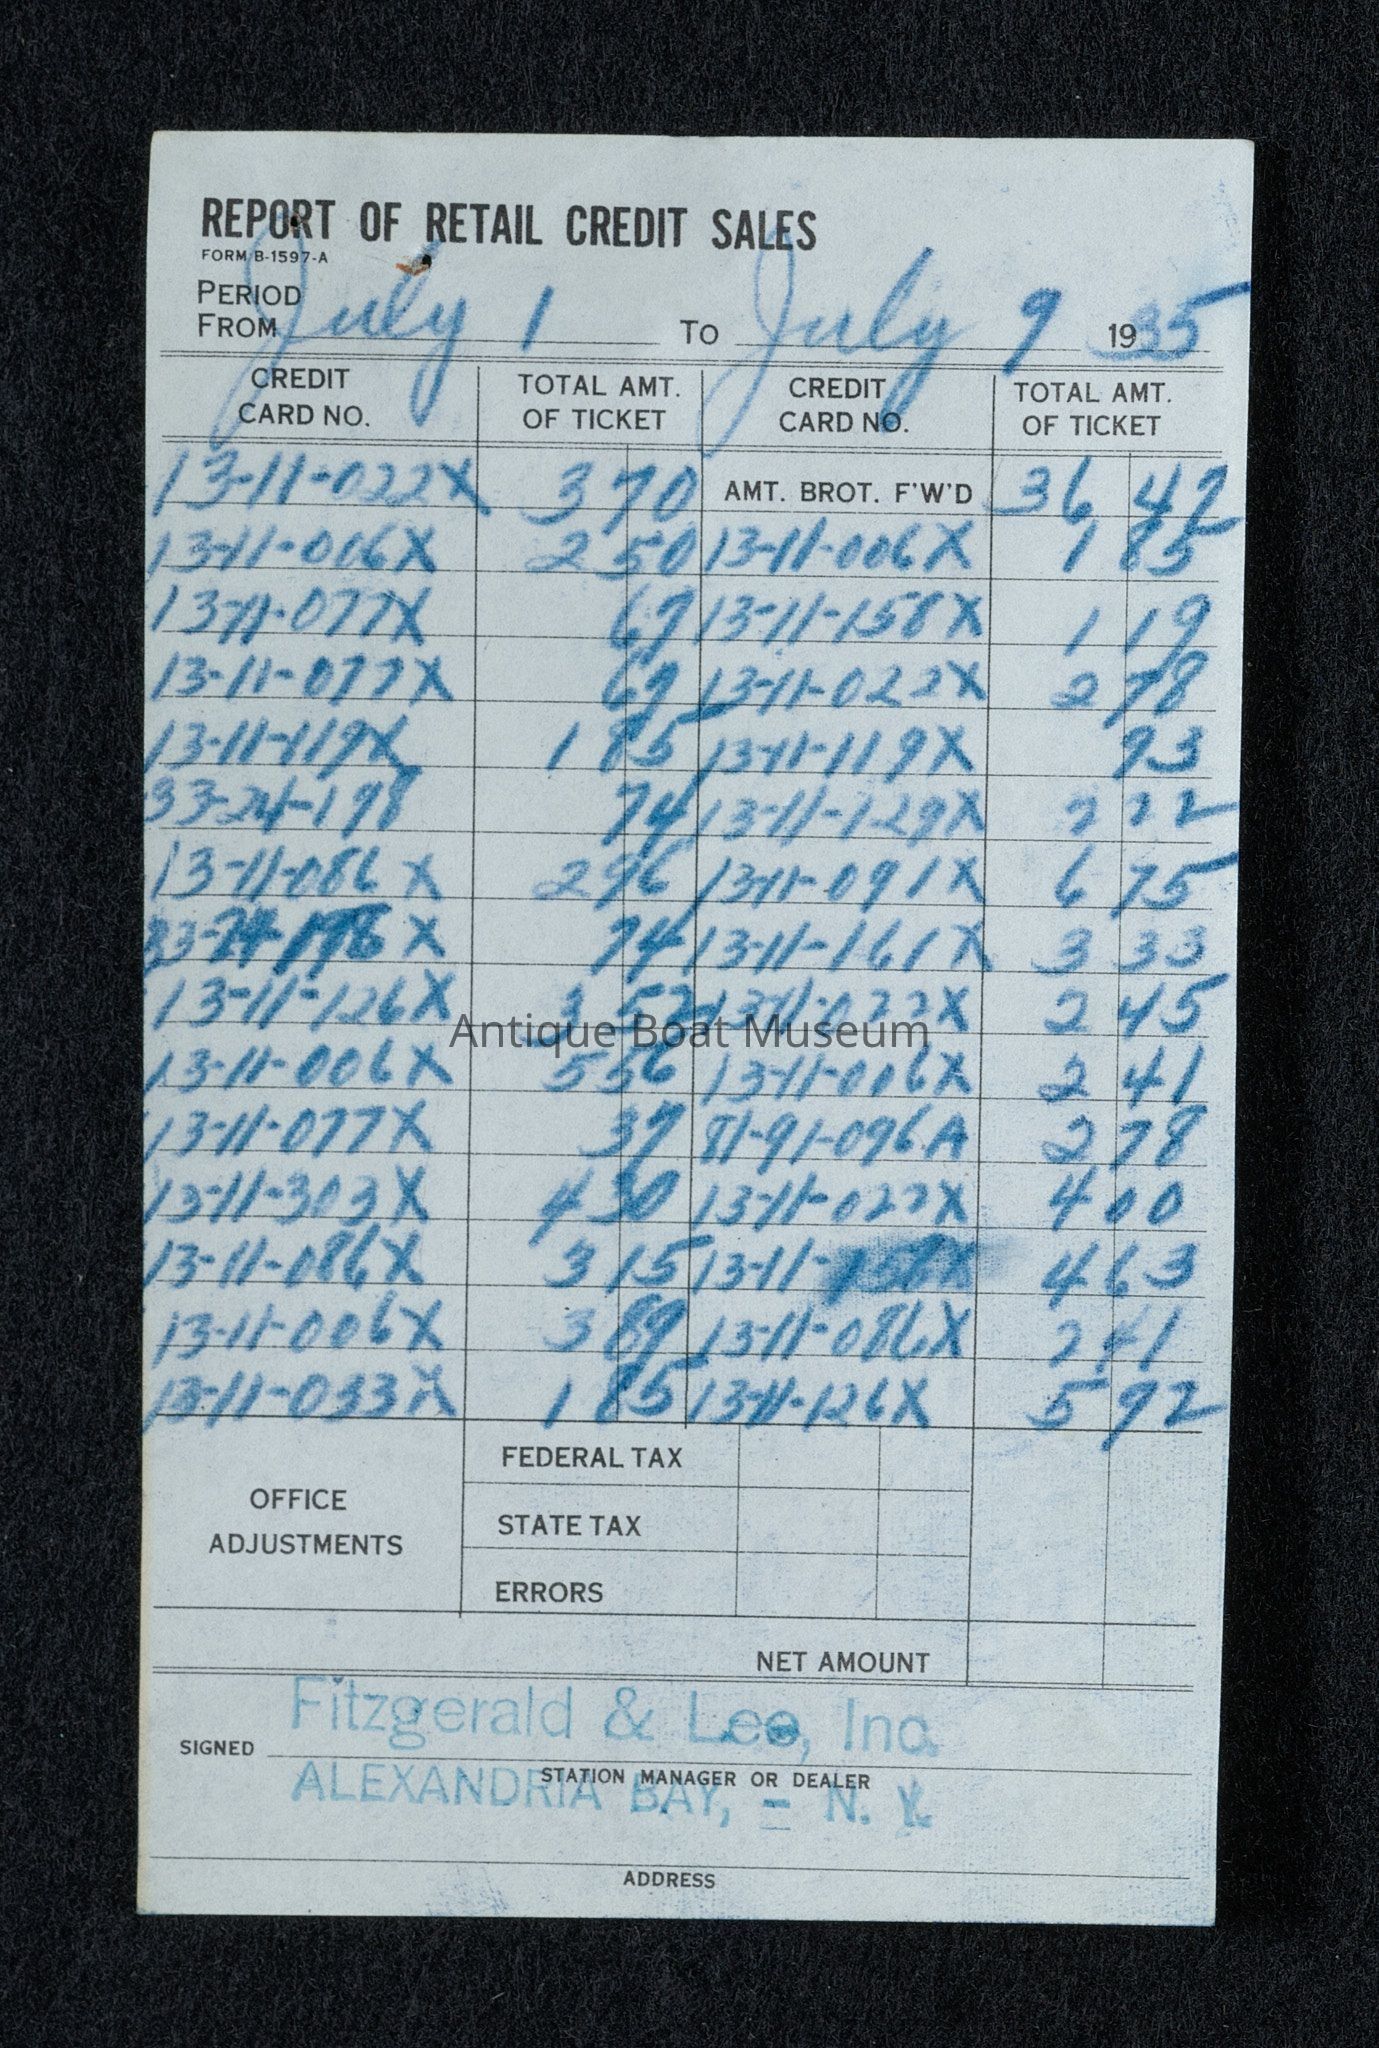 REPORT OF RETAIL CREDIT SALES
FORM B-1597-A
PERIOD
FROM July 1 TO July 9 1935
CREDIT CARD NO. TOTAL AMT. OF TICKET CREDIT CARD NO. TOTAL AMT. OF TICKET
13-11-022X 3 70 AMT. BROT. F'W'D 36 42
13-11-006X 1 85
13-11-077X 13-11-158X 1 19
13-11-077X 13-11-022X 2 78
13-11-119X 1 85 13-11-119X 93
33-24-198 74 13-11-129X 2 22
13-11-086 X 2 96 13-11-091X 6 75
33-24-198 X 74 13-11-161X 3 33
13-11-126X 3 52 13-11-022X 2 45
13-11-006X 5 56 2 41
13-11-077X 37 81-91-096A 2 78
13-11-303X 4 30 13-11-022X 4 00
13-11-086X 3 15 13-11- 4 63
13-11-006X 3 89 13-11-086X 2 41
13-11-033X 1 85 13-11-126X 5 92
OFFICE ADJUSTMENTS
FEDERAL TAX
STATE TAX
ERRORS
NET AMOUNT
Fitzgerald & Lee, Inc.
SIGNED
STATION MANAGER OR DEALER
ALEXANDRIA BAY, - N. Y.
ADDRESS
Antique Boat Museum